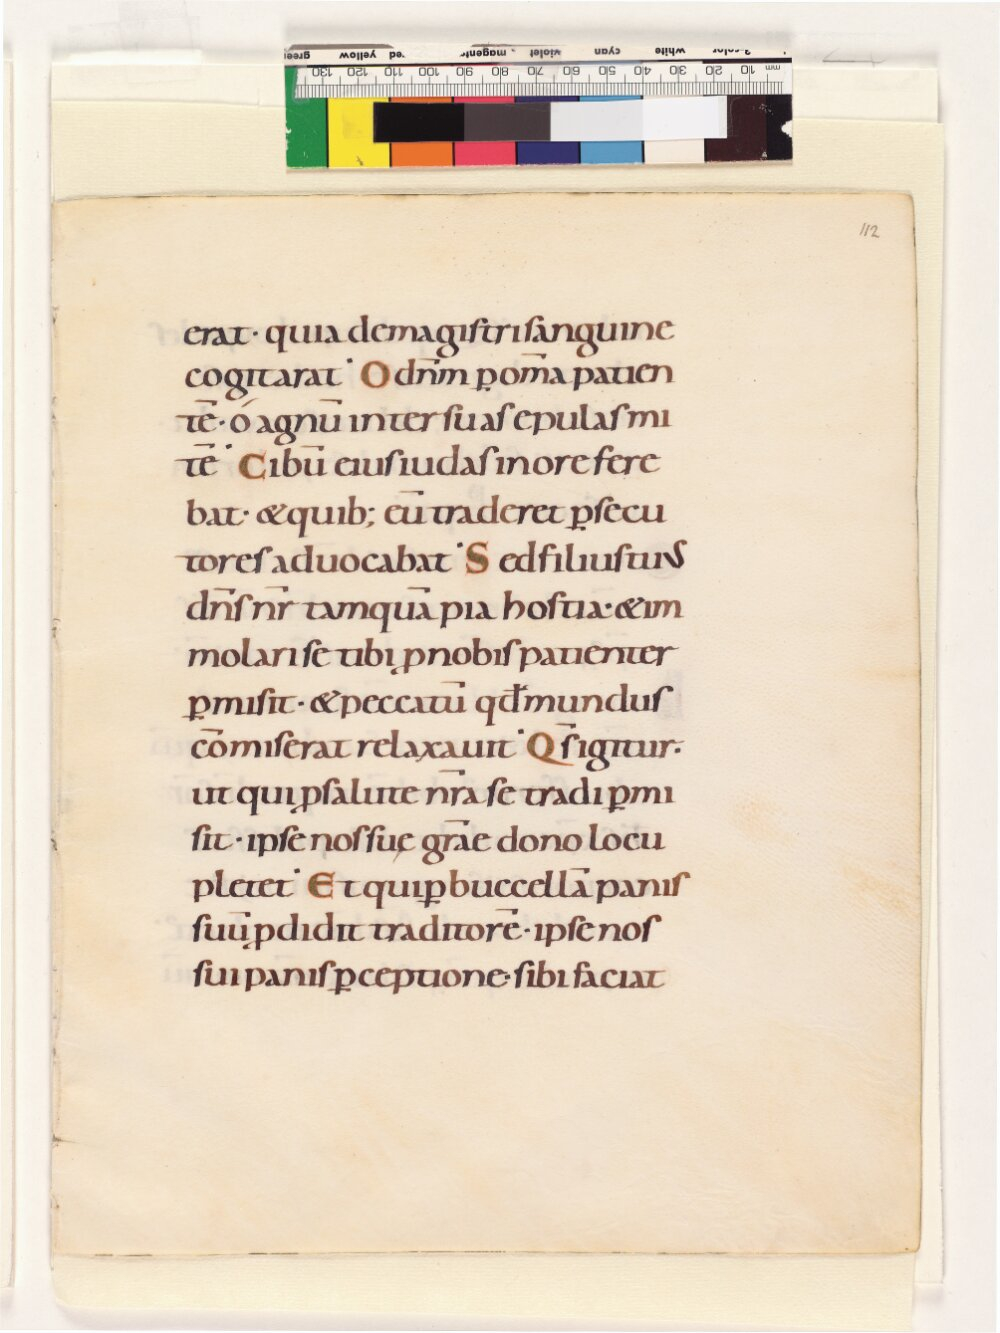 green yellow red magenta violet cyan white 3-color
130 120 110 100 90 80 70 60 50 40 30 20 10 mm
112
erat· quia demagistri sanguine
cogitarat· O dn̄m p̱ om̄a patien
tē· ó agnū inter suas epulas mi
tē· Cibū eius iudas in ore fere
bat· & quib; eū traderet p̱secu
tores aduocabat· Sed filius tuus
dn̄s nr̄ tamquā pia hostia· & im
molari se tibi ꝓ nobis patienter
p̱misit· & peccatū qd̄ mundus
cōmiserat relaxauit· Qs̄ igitur·
ut qui ꝓ salute nr̄a se tradi p̱mi
sit· ipse nos suę gr̄ae dono locu
pletet· Et qui p̱ buccellā panis
suū ꝓdidit traditorē· ipse nos
sui panis p̱ceptione· sibi faciat